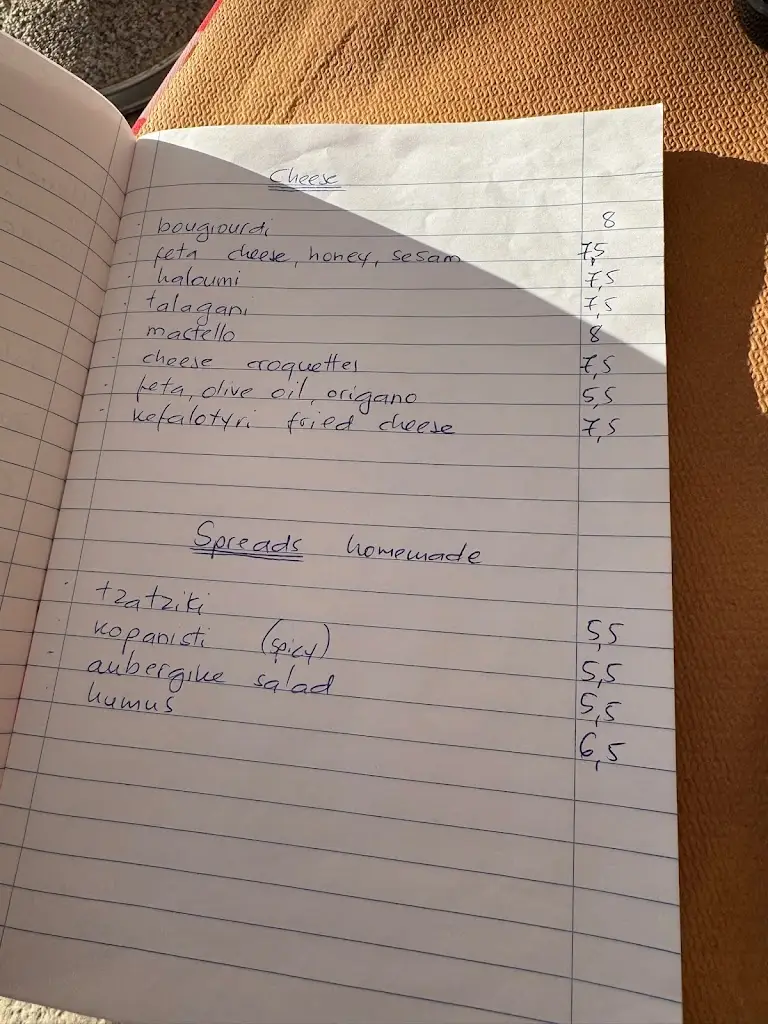 Cheese
- bougiourdi 8
- feta cheese, honey, sesam 7,5
- haloumi 7,5
- talagani 7,5
- mastello 8
- cheese croquettes 7,5
- feta, olive oil, origano 5,5
- kefalotyri fried cheese 7,5
Spreads homemade
- tzatziki 5,5
- kopanisti (spicy) 5,5
- aubergine salad 5,5
- humus 6,5